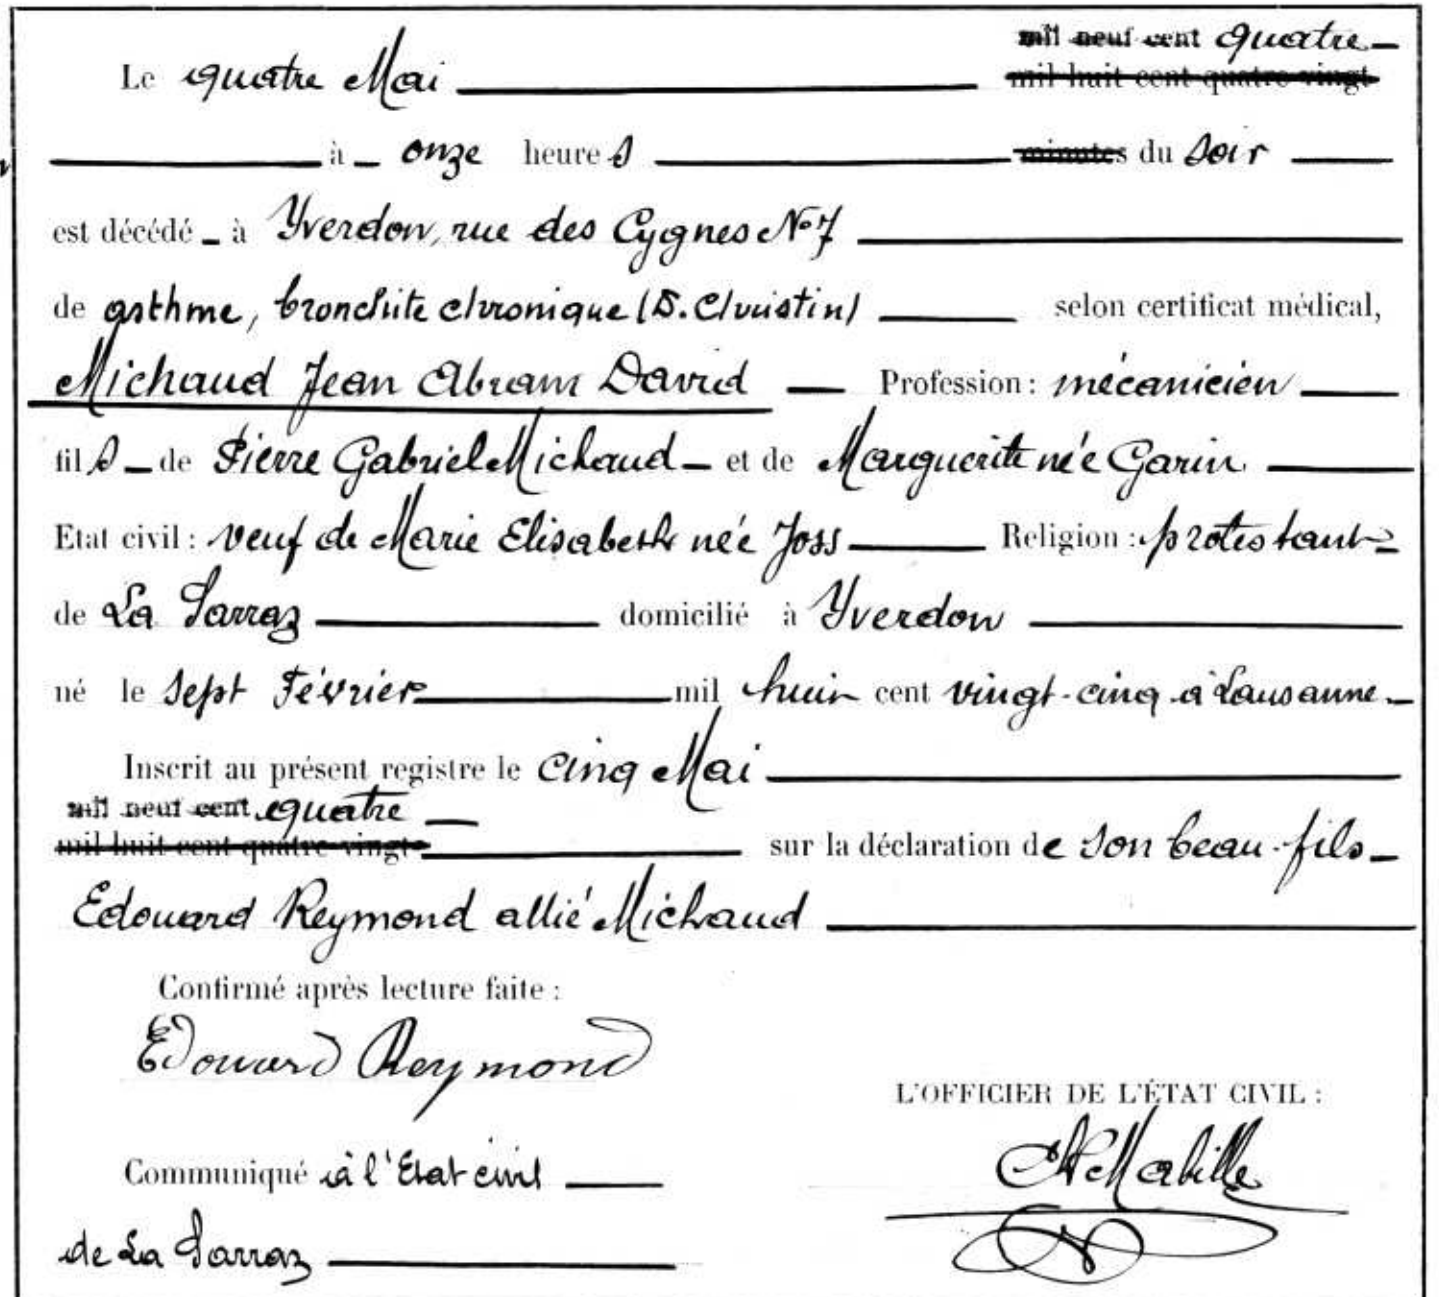 mil neuf cent quatre
Le quatre Mai mil huit cent quatre-vingt
à onze heures minutes du soir
est décédé à Yverdon, rue des Cygnes No 7
de asthme, bronchite chronique (D. Christin) selon certificat médical,
Michaud Jean Abram David Profession : mécanicien
fils de Pierre Gabriel Michaud et de Marguerite née Garin
Etat civil : veuf de Marie Elisabeth née Joss Religion : protestant
de La Sarraz domicilié à Yverdon
né le sept Février mil huit cent vingt-cinq à Lausanne.
Inscrit au présent registre le cinq Mai
mil neuf cent quatre
mil huit cent quatre-vingt sur la déclaration de son beau-fils
Edouard Reymond allié Michaud
Confirmé après lecture faite :
Edouard Reymond
L'OFFICIER DE L'ÉTAT CIVIL :
Mabille
Communiqué à l'Etat civil
de La Sarraz